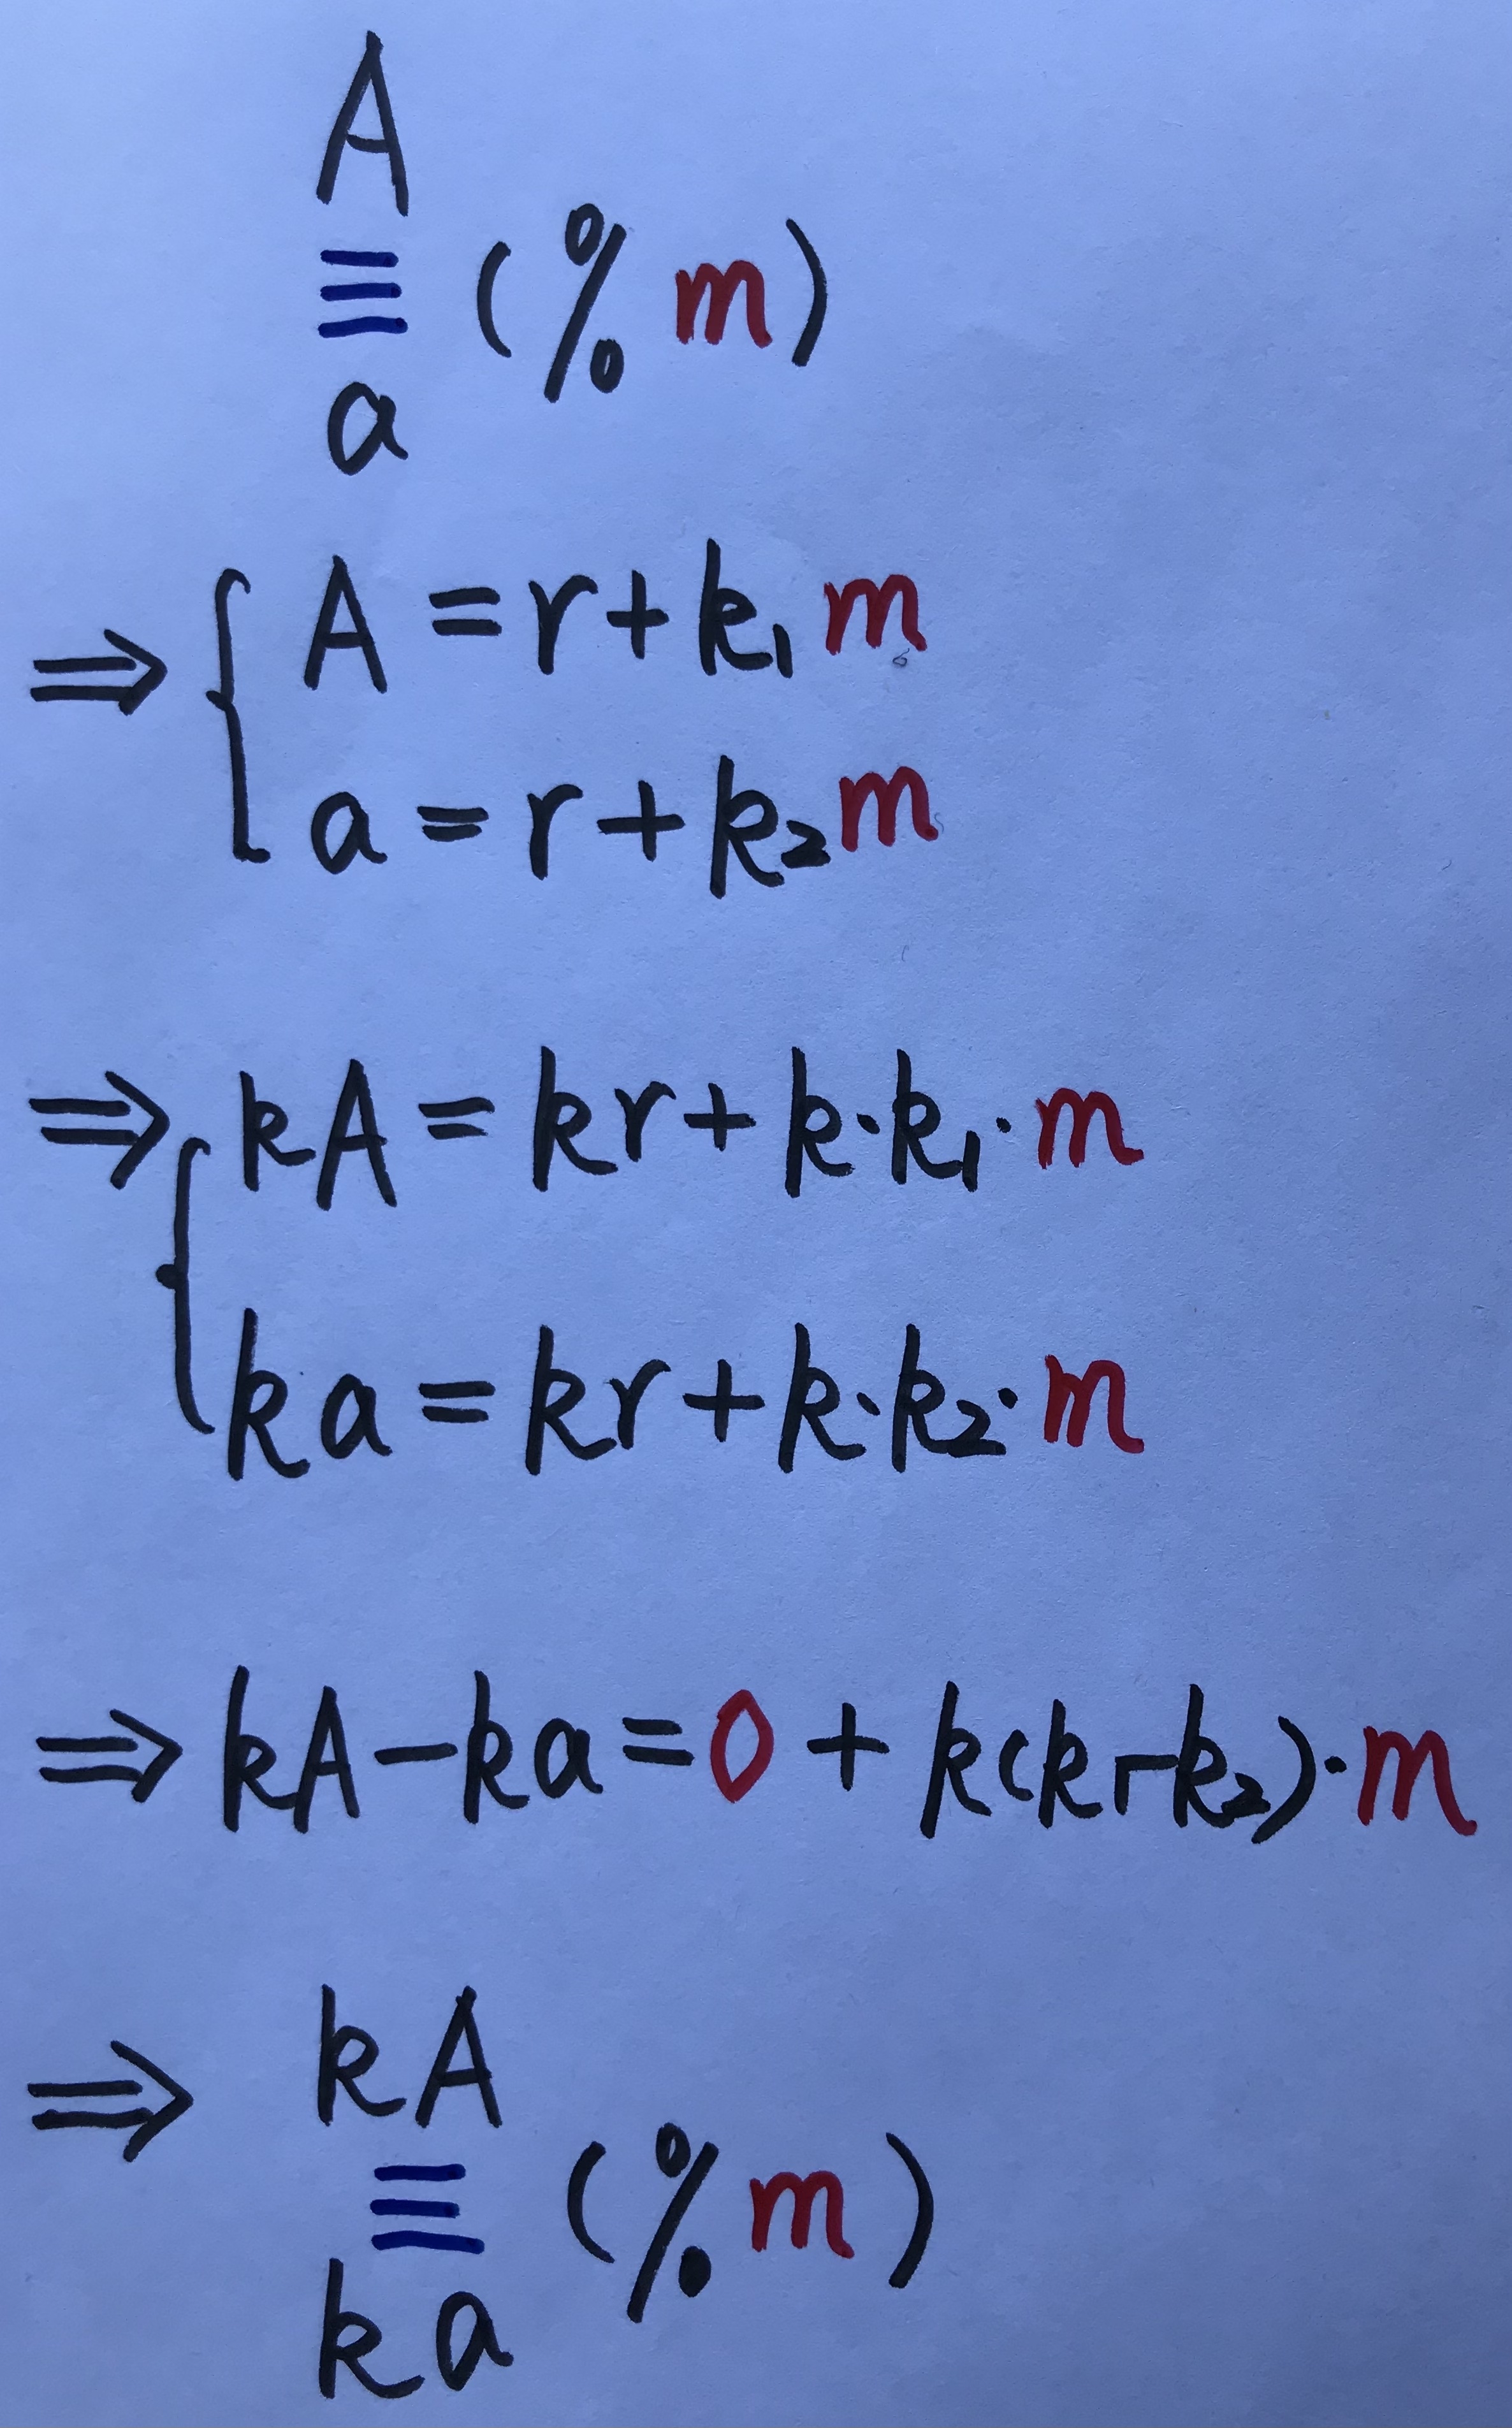 A
≡ (% m)
a
⇒ { A = r + k₁ m
a = r + k₂ m
⇒ { kA = kr + k·k₁·m
ka = kr + k·k₂·m
⇒ kA - ka = 0 + k(k₁-k₂)·m
⇒ kA
≡ (% m)
ka